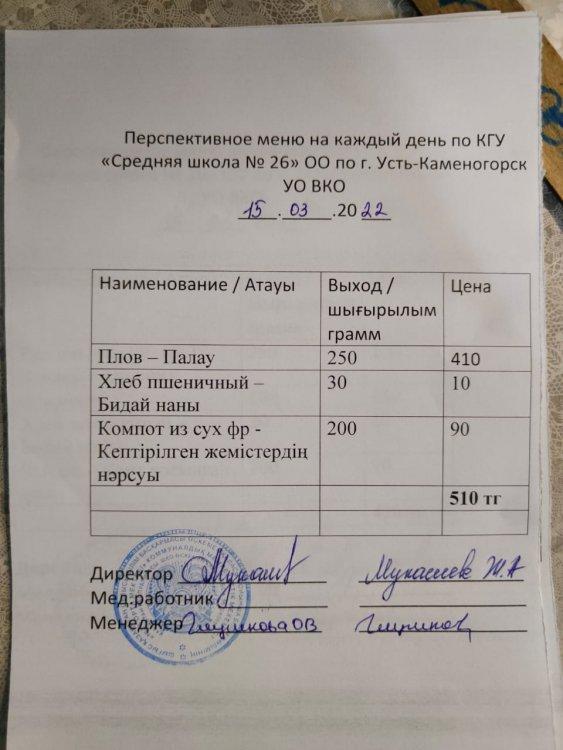 Перспективное меню на каждый день по КГУ
«Средняя школа № 26» ОО по г. Усть-Каменогорск
УО ВКО
15.03.2022
Наименование / Атауы Выход / шығырылым грамм Цена
Плов – Палау 250 410
Хлеб пшеничный – Бидай наны 30 10
Компот из сух фр - Кептірілген жемістердің нәрсуы 200 90
510 тг
Директор Мукашев Ж.А
Мед.работник
Менеджер